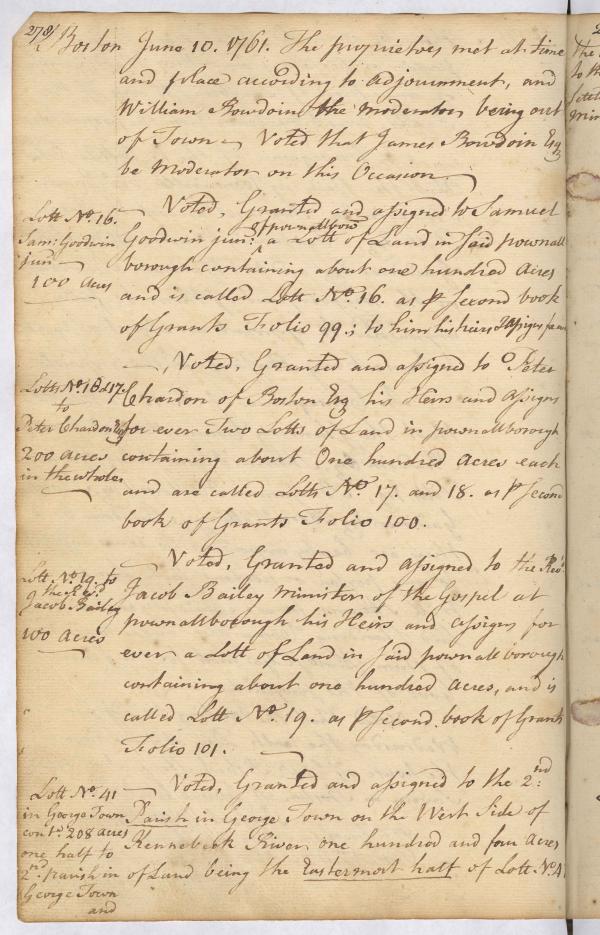 278/
Boston June 10. 1761. The proprietors met at time
and place according to adjournment, and
William Bowdoin the moderator being out
of Town – Voted that James Bowdoin Esq
be Moderator on this Occasion
Lott No. 16.
Sam: Goodwin
jun
100 acres
Voted, Granted and assigned to Samuel
of pownallboro
Goodwin jun: a Lott of Land in said pownall
borough containing about one hundred Acres
and is called Lott No. 16. as ⅌ Second book
of Grants Folio 99; to him his heirs & assigns for ever
Lotts No. 18 & 17.
to
Peter Chardon Esq
200 acres
in the whole
Voted, Granted and assigned to Peter
Chardon of Boston Esq his Heirs and Assigns
for ever Two Lotts of Land in pownallborough
containing about One hundred Acres each
and are called Lotts No. 17. and 18. as ⅌ Second
book of Grants Folio 100.
Lott No. 19. to
the Revd.
Jacob Bailey
100 Acres
Voted, Granted and assigned to the Revd.
Jacob Bailey minister of the Gospel at
pownallborough his Heirs and assigns for
ever a Lott of Land in said pownallborough
containing about one hundred Acres, and is
called Lott No. 19. as ⅌ Second book of Grants
Folio 101.
Lott No. 41
in George Town
contg. 208 acres
one half to
2nd. parish in
George Town
and
Voted, Granted and assigned to the 2nd:
Parish in George Town on the West Side of
Kennebeck River one hundred and four Acres
of Land being the Eastermost half of Lott. No. 41